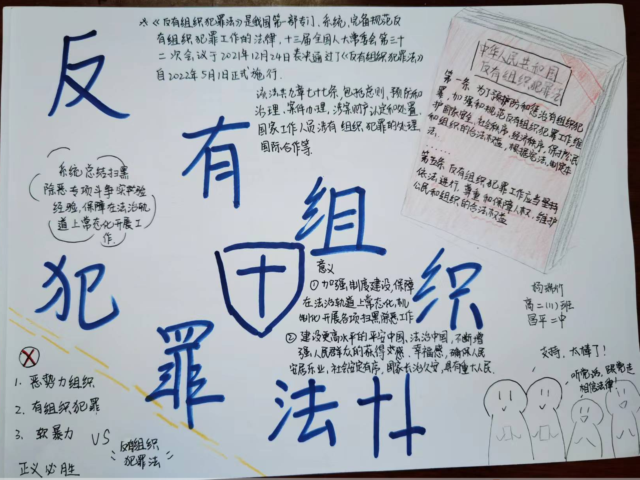 反有组织犯罪法
*《反有组织犯罪法》是我国第一部专门、系统、完备规范反
有组织犯罪工作的法律，十三届全国人大常委会第三十
二次会议于2021年12月24日表决通过了《反有组织犯罪法》
自2022年5月1日正式施行.
该法共九章七十七条，包括总则、预防和
治理、案件办理、涉案财产认定和处置、
国家工作人员涉有组织犯罪的处理、
国际合作等.
中华人民共和国
反有组织犯罪法
第一条 为了预防和惩治有组织犯
罪，加强和规范反有组织犯罪工作，维
护国家安全、社会秩序、经济秩序，保护公民
和组织的合法权益，根据宪法，制定本
法。
第五条 反有组织犯罪工作应当坚持
依法进行，尊重和保障人权，维护
公民和组织的合法权益
系统总结扫黑
除恶专项斗争实践经验
经验，保障在法治轨
道上常态化开展工
作
意义
① 加强制度建设，保障
在法治轨道上常态化，机
制化开展各项扫黑除恶工作
② 建设更高水平的平安中国、法治中国，不断增
强人民群众的获得感、幸福感，确保人民
安居乐业，社会安定有序，国家长治久安，具有重大人民.
高二(11)班
昌平二中
1. 恶势力组织
2. 有组织犯罪
3. 软暴力
VS
反有组织
犯罪法
正义必胜
支持，太棒了！
听党话，跟党走
相信法律！